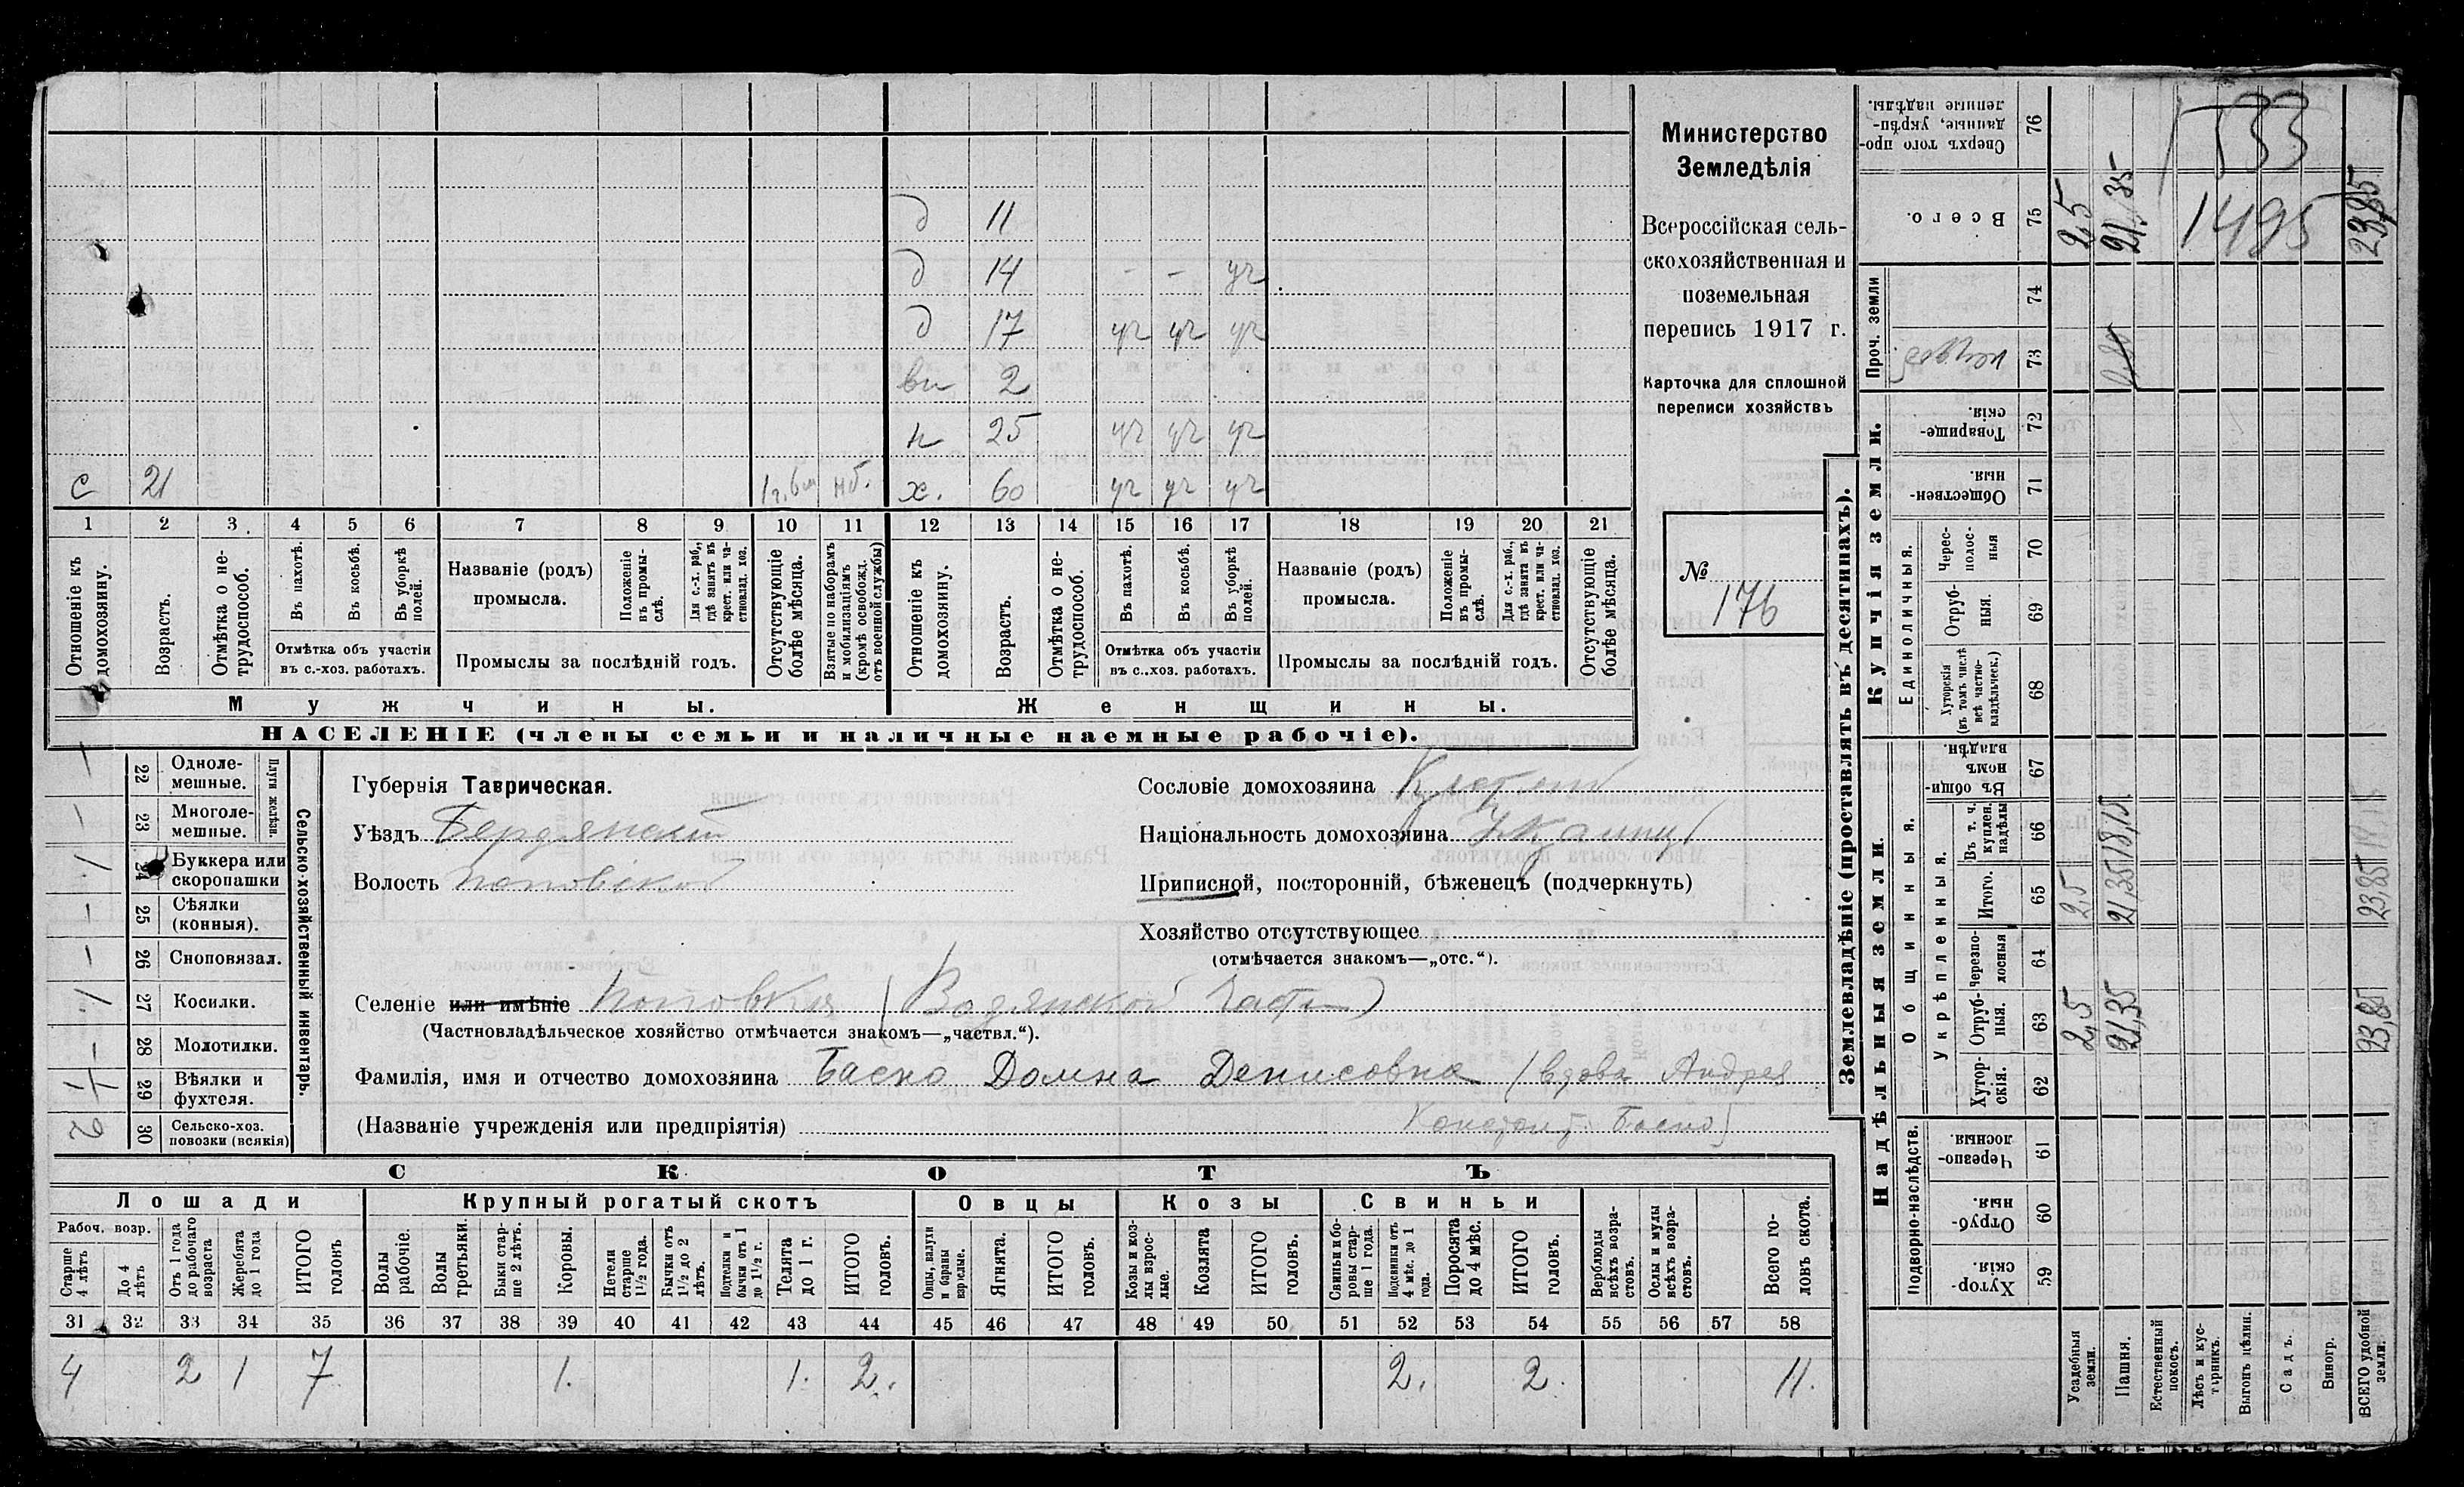 д 11
д 14 - - уч
д 17 уч уч уч
вн 2
н 25 уч уч уч
с 21 нб. х. 60 уч уч уч
1 2 3 4 5 6 7 8 9 10 11 12 13 14 15 16 17 18 19 20 21
Отношеніе къ домохозяину.
Возрастъ.
Отмѣтка о не-трудоспособ.
Въ пахотѣ.
Въ косьбѣ.
Въ уборкѣ полей.
Отмѣтка объ участіи въ с.-хоз. работахъ.
Названіе (родъ) промысла.
Положеніе въ промы-слѣ.
Для с.-х. раб., гдѣ занятъ въ крест. или ча-стновлад. хоз.
Промыслы за послѣдній годъ.
Отсутствующіе болѣе мѣсяца.
Взятые по наборамъ и мобилизаціямъ (кромѣ освобожд. отъ военной службы)
Отношеніе къ домохозяину.
Возрастъ.
Отмѣтка о не-трудоспособ.
Въ пахотѣ.
Въ косьбѣ.
Въ уборкѣ полей.
Отмѣтка объ участіи въ с..хоз. работахъ.
Названіе (родъ) промысла.
Положеніе въ промы-слѣ.
Для с.-х. раб., гдѣ занята въ крест. или ча-стновлад. хоз.
Промыслы за послѣдній годъ.
Отсутствующіе болѣе мѣсяца.
Мужчины.
Женщины.
НАСЕЛЕНІЕ (члены семьи и наличные наемные рабочіе).
Министерство
Земледѣлія
Всероссійская сель-
скохозяйственная и
поземельная
перепись 1917 г.
Карточка для сплошной
переписи хозяйствъ
№
176
Сельско-хозяйственный инвентарь.
Плуги желѣзн.
22 Одноле-мешные. —
23 Многоле-мешные. —
24 Буккера или скоропашки 1
25 Сѣялки (конныя). —
26 Сноповязал. —
27 Косилки. 1
28 Молотилки. —
29 Вѣялки и фухтеля.
30 Сельско-хоз. повозки (всякія) 2
Губернія Таврическая.
Уѣздъ Бердянскій
Волость Поповской
Сословіе домохозяина
Національность домохозяина
Приписной, посторонній, бѣженецъ (подчеркнуть)
Хозяйство отсутствующее
(отмѣчается знакомъ—„отс.“).
Селеніе или имѣніе Поповка (Водянской части)
(Частновладѣльческое хозяйство отмѣчается знакомъ—„частвл.“).
Фамилія, имя и отчество домохозяина Баско Домна Денисовна (вдова Андрея
(Названіе учрежденія или предпріятія) Констант. Баско)
СКОТЪ
Лошади
Крупный рогатый скотъ
Овцы
Козы
Свиньи
Рабоч. возр.
Старше 4 лѣтъ
До 4 лѣтъ
Отъ 1 года до рабочаго возраста
Жеребята до 1 года
ИТОГО головъ
Волы рабочіе.
Волы третьяки.
Быки стар-ше 2 лѣтъ.
Коровы.
Нетели старше 1½ года.
Бычки отъ 1½ до 2 лѣтъ.
Подтелки и бычки отъ 1 до 1½ г.
Телята до 1 г.
ИТОГО головъ.
Овцы, валухи и бараны взрослые.
Ягнята.
ИТОГО головъ.
Козы и коз-лы взрос-лые.
Козлята
ИТОГО головъ.
Свиньи и бо-ровы стар-ше 1 года.
Подсвинки отъ 4 мѣс. до 1 года.
Поросята до 4 мѣс.
ИТОГО головъ.
Верблюды всѣхъ возра-стовъ.
Ослы и мулы всѣхъ возра-стовъ.
Всего го-ловъ скота.
31 32 33 34 35 36 37 38 39 40 41 42 43 44 45 46 47 48 49 50 51 52 53 54 55 56 57 58
4 2 1 7 1. 1. 2. 2. 2. 11.
Землевладѣніе (проставлять въ десятинахъ).
Надѣльныя земли.
Купчія земли.
Проч. земли
Подворно-наслѣдств.
Общинныя.
Укрѣпленныя.
Единоличныя.
Хутор-скія. 59
Отруб-ныя. 60
Черезпо-лосныя. 61
Хутор-скія. 62
Отруб-ныя. 63
Черезпо-лосныя 64
Итого. 65
Въ т. ч. куплен. надѣлы 66
Въ общин-номъ владѣн. 67
Хуторскія (въ томъ числѣ всѣ частно-владѣльческ.) 68
Отруб-ныя. 69
Черес-полос-ныя 70
Обществен-ныя. 71
Товарище-скія. 72
73
74
Всего. 75
Сверхъ того про-данные, укрѣп-ленные надѣлы. 76
Усадебныя земли. 2,5 2,5 2,5
Пашня. 21,35 21,35 18,15 21,35
Естественный покосъ.
Лѣсъ и кус-тарникъ.
Выгонъ цѣлин.
Садъ.
Виногр.
ВСЕГО удобной земли. 23,85 23,85 23,85
1533
1495